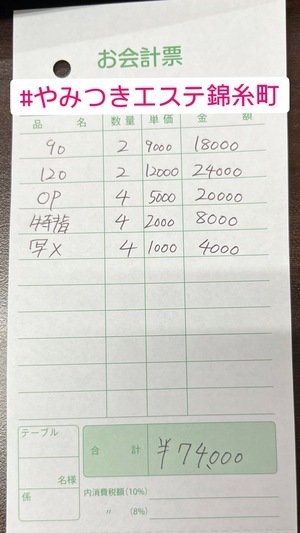 お会計票
#やみつきエステ錦糸町
品 名 数量 単価 金 額
90 2 9000 18000
120 2 12000 24000
OP 4 5000 20000
特指 4 2000 8000
写X 4 1000 4000
テーブル
名様
係
合 計 ¥74,000
内消費税額(10%)
〃 (8%)